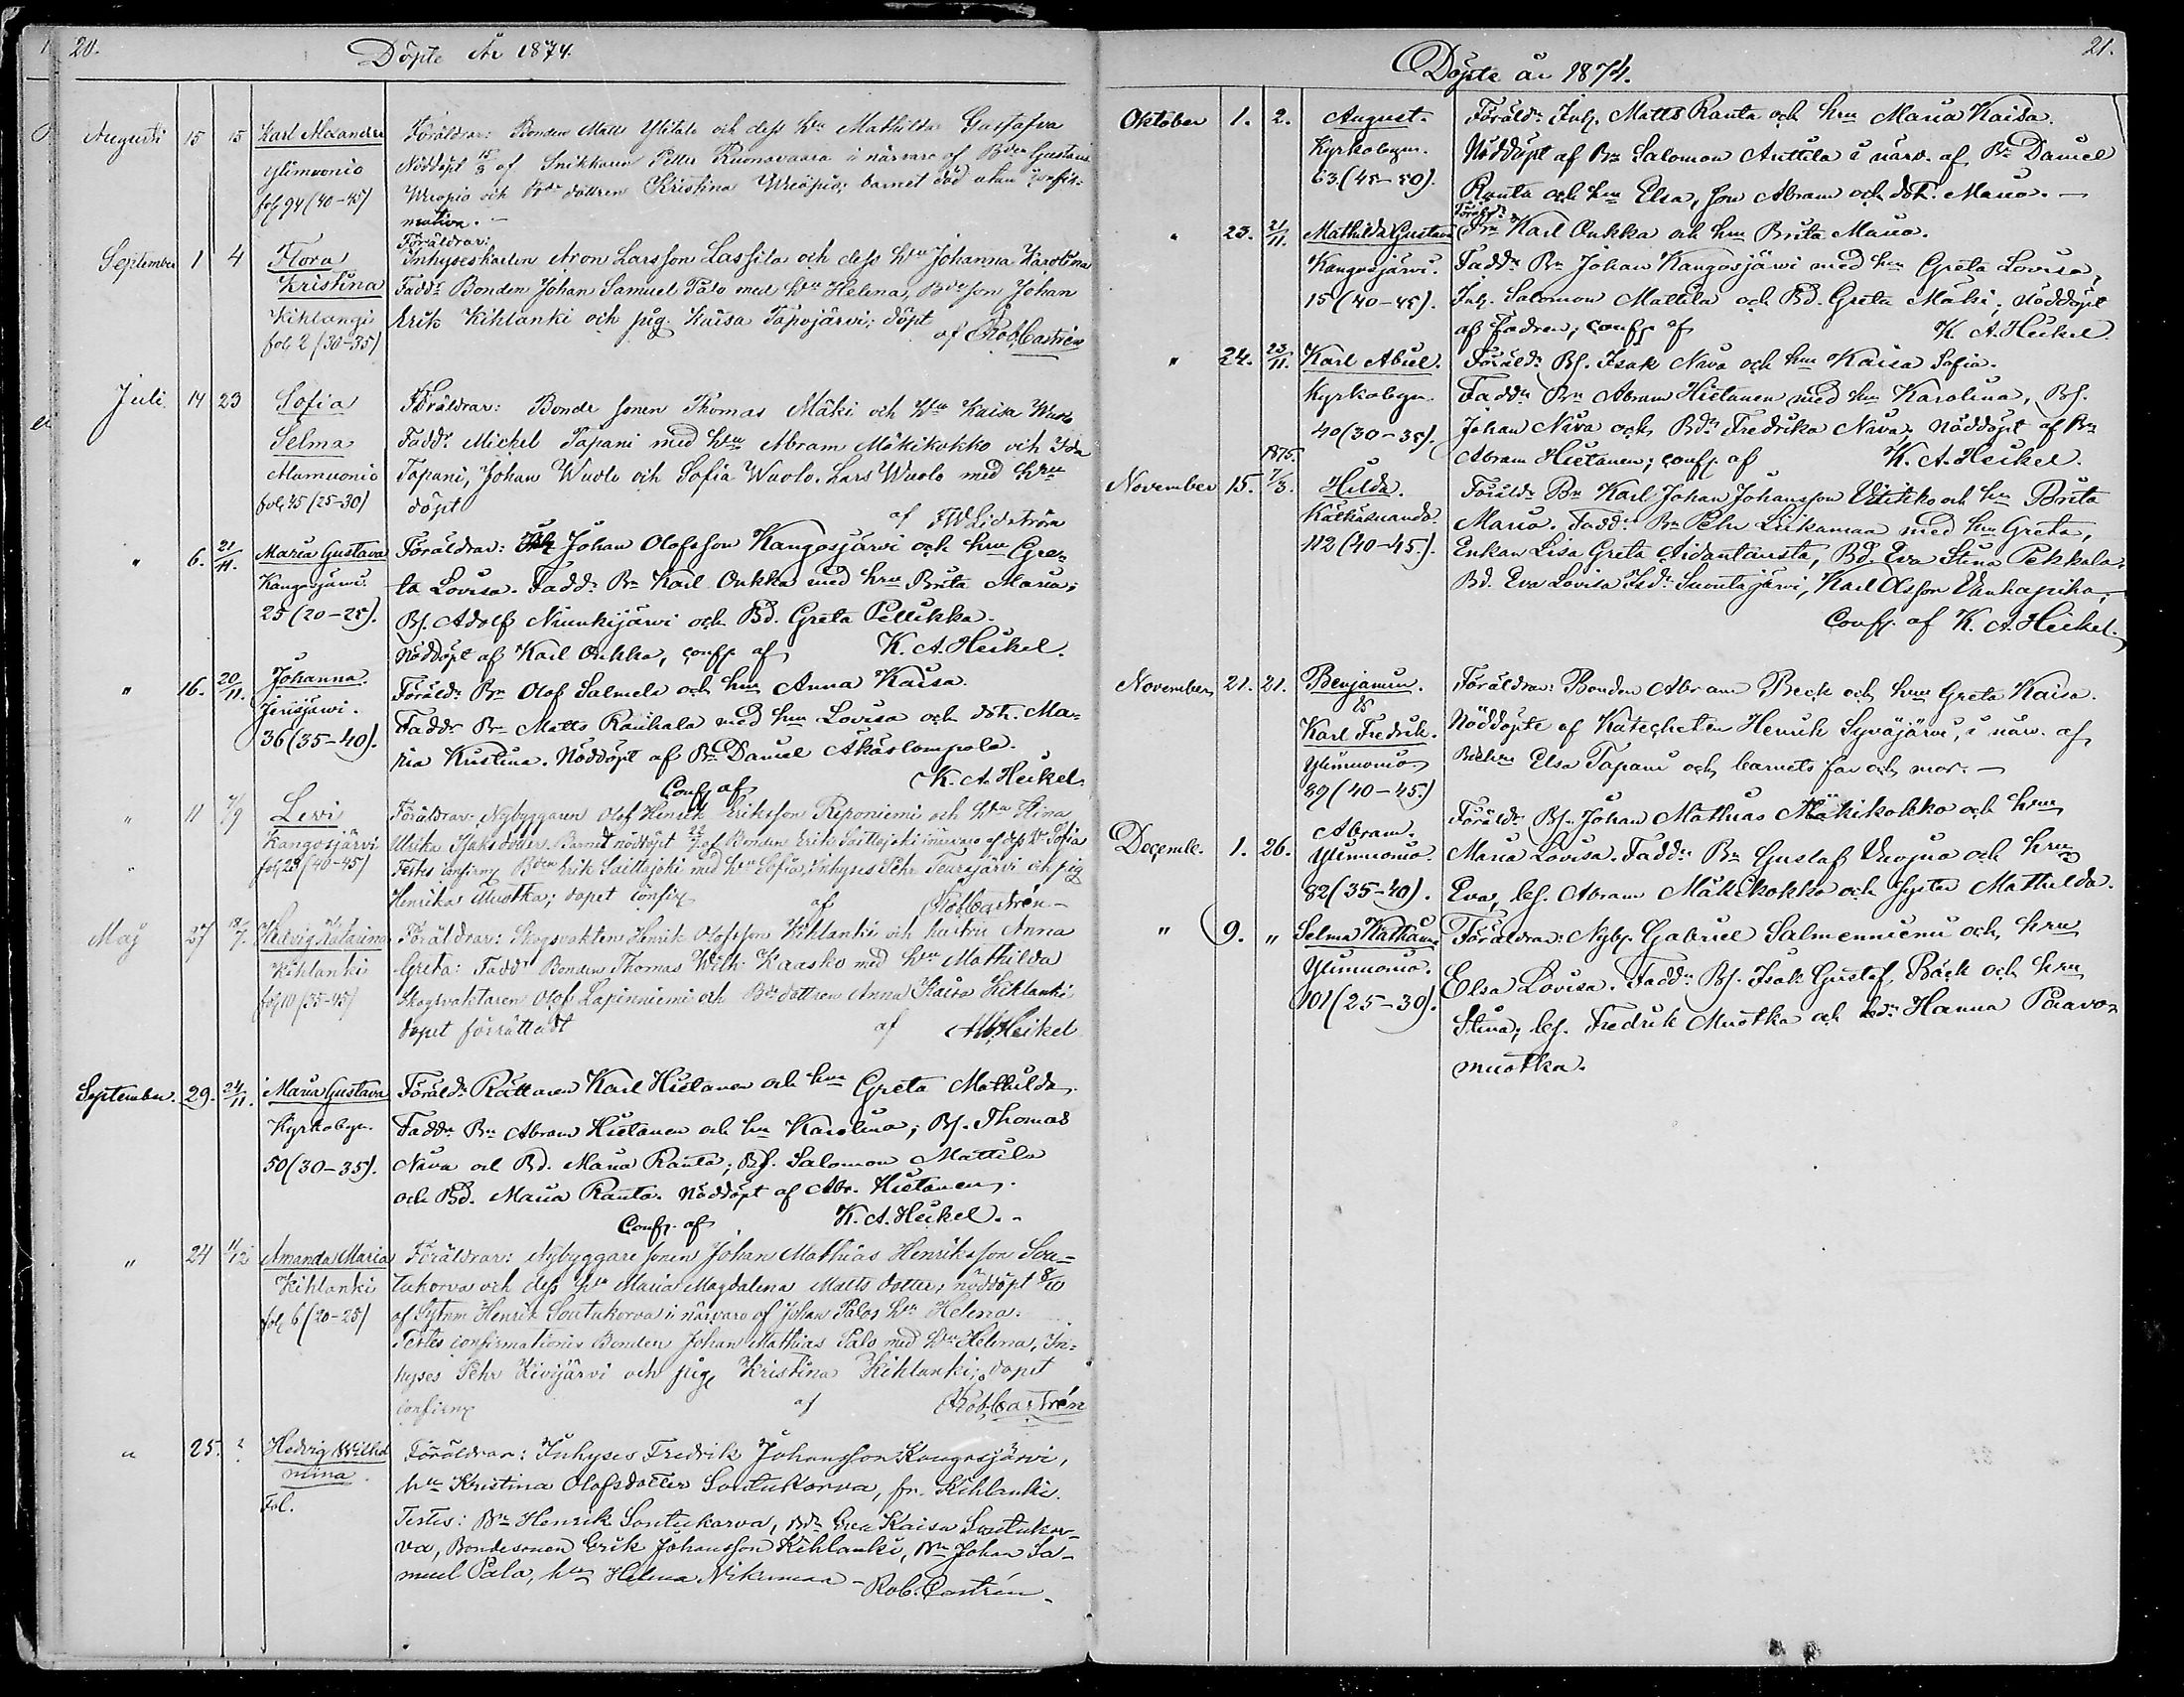 20.
Döpte År 1874.
Augusti 15 15 Karl Alexander Föräldrar: Bonden Matts Ylitalo och dess hu Mathilda Gustafva
Ylimuonio Nöddöpt af Snikkaren Petter Ruonavaara i närvaro af Bden Gustaf
fol 94 (40-45) Wuopio och Bde dottren Kristina Wuopio; barnet död utan confir-
mation. —
Föräldrar:
September 1 4 Flora Inhyseskarlen Aron Larsson Lassila och dess hu Johanna Karolina
Kristina Fadd: Bonden Johan Samuel Palo med hu Helena, Bde son Johan
Kihlangi Erik Kihlanki och pig Kaisa Tapojärvi; döpt
fol 2 (30-35) af Rob Castrén
Juli 14 23 Sofia Föräldrar: Bonde sonen Thomas Mäki och hu Kaisa Wuolo
Selma Fadd: Michel Tapani med hu Abram Mäkikokko och Ida
Alamuonio Tapani, Johan Wuolo och Sofia Wuolo. Lars Wuolo med hu
fol 45 (25-30) döpt
af FW Lidström
" 6. 21/11. Maria Gustava Föräldrar: Johan Olofsson Kangosjärvi och hru Gre-
Kangosjärvi. ta Lovisa. Fadd: Bn Karl Onkka med hru Brita Maria;
25 (20-25). Bs. Adolf Niunkijärvi och Bd. Greta Pellikka.
Nöddöpt af Karl Onkka, conf. af K. A. Heikel.
" 16. 20/11. Johanna. Föräld: Bn Olof Salmela och hru Anna Kaisa.
Jerisjärvi. Fadd: Bn Matts Rauhala med hru Lovisa och dot. Ma-
36 (35-40). ria Kristina. Nöddöpt af Bn Daniel Äkäslompolo.
Conf. af K. A. Heikel.
" 11 7/9 Levi Föräldrar: Nybyggaren Olof Henrik Eriksson Reponiemi och hu Stina
Kangosjärvi Ulrika Isaks dotter. Barnet nöddöpt af Bonden Erik Saittajoki i närvaro af dess hu Sofia
" fol 28 (40-45) Testes confirm Bden Erik Saittajoki med hu Sofia, Inhyses Pehr Teurajärvi och pig
Henrika Muotka; dopet confir af Rob Castrén —
Maj 27 Hedvig Katarina Föräldrar: Skogsvakten Henrik Olofsson Kihlanki och hustru Anna
Kihlanki Greta: Fadd: Bonden Thomas Wilh. Kaasko med hu Mathilda
fol 10 (35-45) Skogsvaktaren Olof Lapinniemi och Bde dottren Anna Kaisa Kihlanki
dopet förrättadt af Heikel
September. 29. 24/11. Maria Gustava Föräld: Rättaren Karl Hietanen och hru Greta Mathilda.
Kyrkobyn. Fadd: Bn Abram Hietanen och hru Karolina; Bs. Thomas
50 (30-35). Näva och Bd. Maria Ranta; Bs. Salomon Mattila
och Bd. Maria Ranta. Nöddöpt af Abr. Hietanen.
Conf. af K. A. Heikel. -
" 24 11/12 Amanda Maria Föräldrar: Nybyggare sonen Johan Mathias Henriksson Sou-
Kihlanki tukorva och dess hu Maria Magdalena Matts dotter, nöddöpt 8/10
fol 6 (20-25) af Henrik Soutukorva i närvaro af Johan Palos hu Helena.
Testes confirmationis Bonden Johan Mathias Palo med hu Helena, In-
hyses Pehr Kivijärvi och pig Kristina Kihlanki; dopet
confirm af Rob. Castrén
" 25. ? Hedvig Wilhel Föräldrar: Inhyses Fredrik Johansson Kangosjärvi,
mina. hu Kristina Olofsdotter Soutukorva, fr. Kihlanki.
Fol. Testes: Bn Henrik Soutukorva, Bdr Eva Kaisa Soutukor-
va, Bondesonen Erik Johansson Kihlanki, Bn Johan Sa-
muel Palo, hu Helena Nikunmaa - Rob. Castrén.
21.
Döpte år 1874.
Oktober 1. 2. August. Föräld: Inh. Matts Ranta och hru Maria Kaisa.
Kyrkobyn. Nöddöpt af Bn Salomon Anttila i närv. af Bn Daniel
63 (45-50). Ranta och hru Elsa, son Abram och dot. Maria. —
Föräld:
" 23. 21/11. Mathilda Gustava Bn Karl Onkka och hru Brita Maria.
Kangosjärvi. Fadd: Bn Johan Kangosjärvi med hru Greta Lovisa,
15 (40-45). Inh. Salomon Mattila och Bd. Greta Mäki; Nöddöpt
af fadren; conf. af K. A. Heikel.
" 24. 23/11. Karl Abiel. Föräld: Bs. Isak Näva och hru Kaisa Sofia.
Kyrkobyn. Fadd: Bn Abram Hietanen med hru Karolina, Bs.
40 (30-35). Johan Näva och Bdr Fredrika Näva, nöddöpt af Bn
1875. Abram Hietanen; conf. af K. A. Heikel.
November 15. 7/3. Hilda. Föräld: Bn Karl Johan Johansson Viitikko och hru Brita
Kätkäsuando. Maria. Fadd: Bn Pehr Liikamaa med hru Greta,
112 (40-45). Enkan Lisa Greta Aidantausta, Bd. Eva Stina Pekkala.
Bd. Eva Lovisa Isdr Suontajärvi, Karl Olsson Vanhapiha,
Conf. af K. A. Heikel.
November 21. 21. Benjamin. Föräldrar: Bonden Abram Beck och hru Greta Kaisa.
&
Karl Fredrik. Nöddöpte af Katecheten Henrik Syväjärvi, i närv. af
Ylimuonio Elsa Tapani och barnets far och mor. —
89 (40-45.)
Abram. Föräld: Bs. Johan Mathias Mäkikokko och hru
Decemb. 1. 26. Ylimuonio. Maria Lovisa. Fadd: Bn Gustaf Vuojua och hru
82 (35-40). Eva, bs. Abram Mäkikokko och syster Mathilda.
" 9. " Selma Katharina Föräldrar: Nyby. Gabriel Salmenniemi och hru
Ylimuonio. Elsa Lovisa. Fadd: Bs. Isak Gustaf Bäck och hru
101 (25-30). Stina; bs. Fredrik Muotka och bdr Hanna Paavo-
muotka.